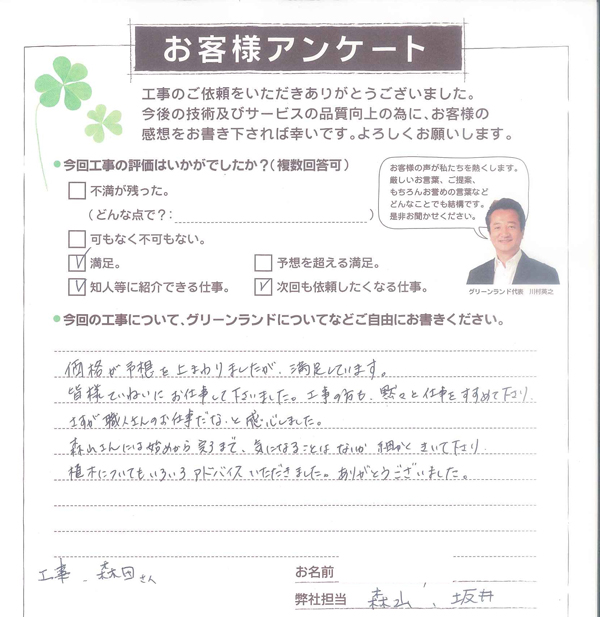 お客様アンケート
工事のご依頼をいただきありがとうございました。
今後の技術及びサービスの品質向上の為に、お客様の
感想をお書き下されば幸いです。よろしくお願いします。
●今回工事の評価はいかがでしたか？（複数回答可）
不満が残った。
（どんな点で？： ）
可もなく不可もない。
満足。
予想を超える満足。
知人等に紹介できる仕事。
次回も依頼したくなる仕事。
お客様の声が私たちを熱くします。
厳しいお言葉、ご提案、
もちろんお誉めの言葉など
どんなことでも結構です。
是非お聞かせください。
グリーンランド代表 川村英之
●今回の工事について、グリーンランドについてなどご自由にお書きください。
価格が予想を上まわりましたが、満足しています。
皆様ていねいにお仕事して下さいました。工事の方も、黙々と仕事をすすめて下さり、
さすが職人さんのお仕事だな、と感心しました。
森山さんには始めから完了まで、気になることはないか細かくきいて下さり、
植木についてもいろいろアドバイスいただきました。ありがとうございました。
工事、森田さん
お名前
弊社担当 森山、坂井